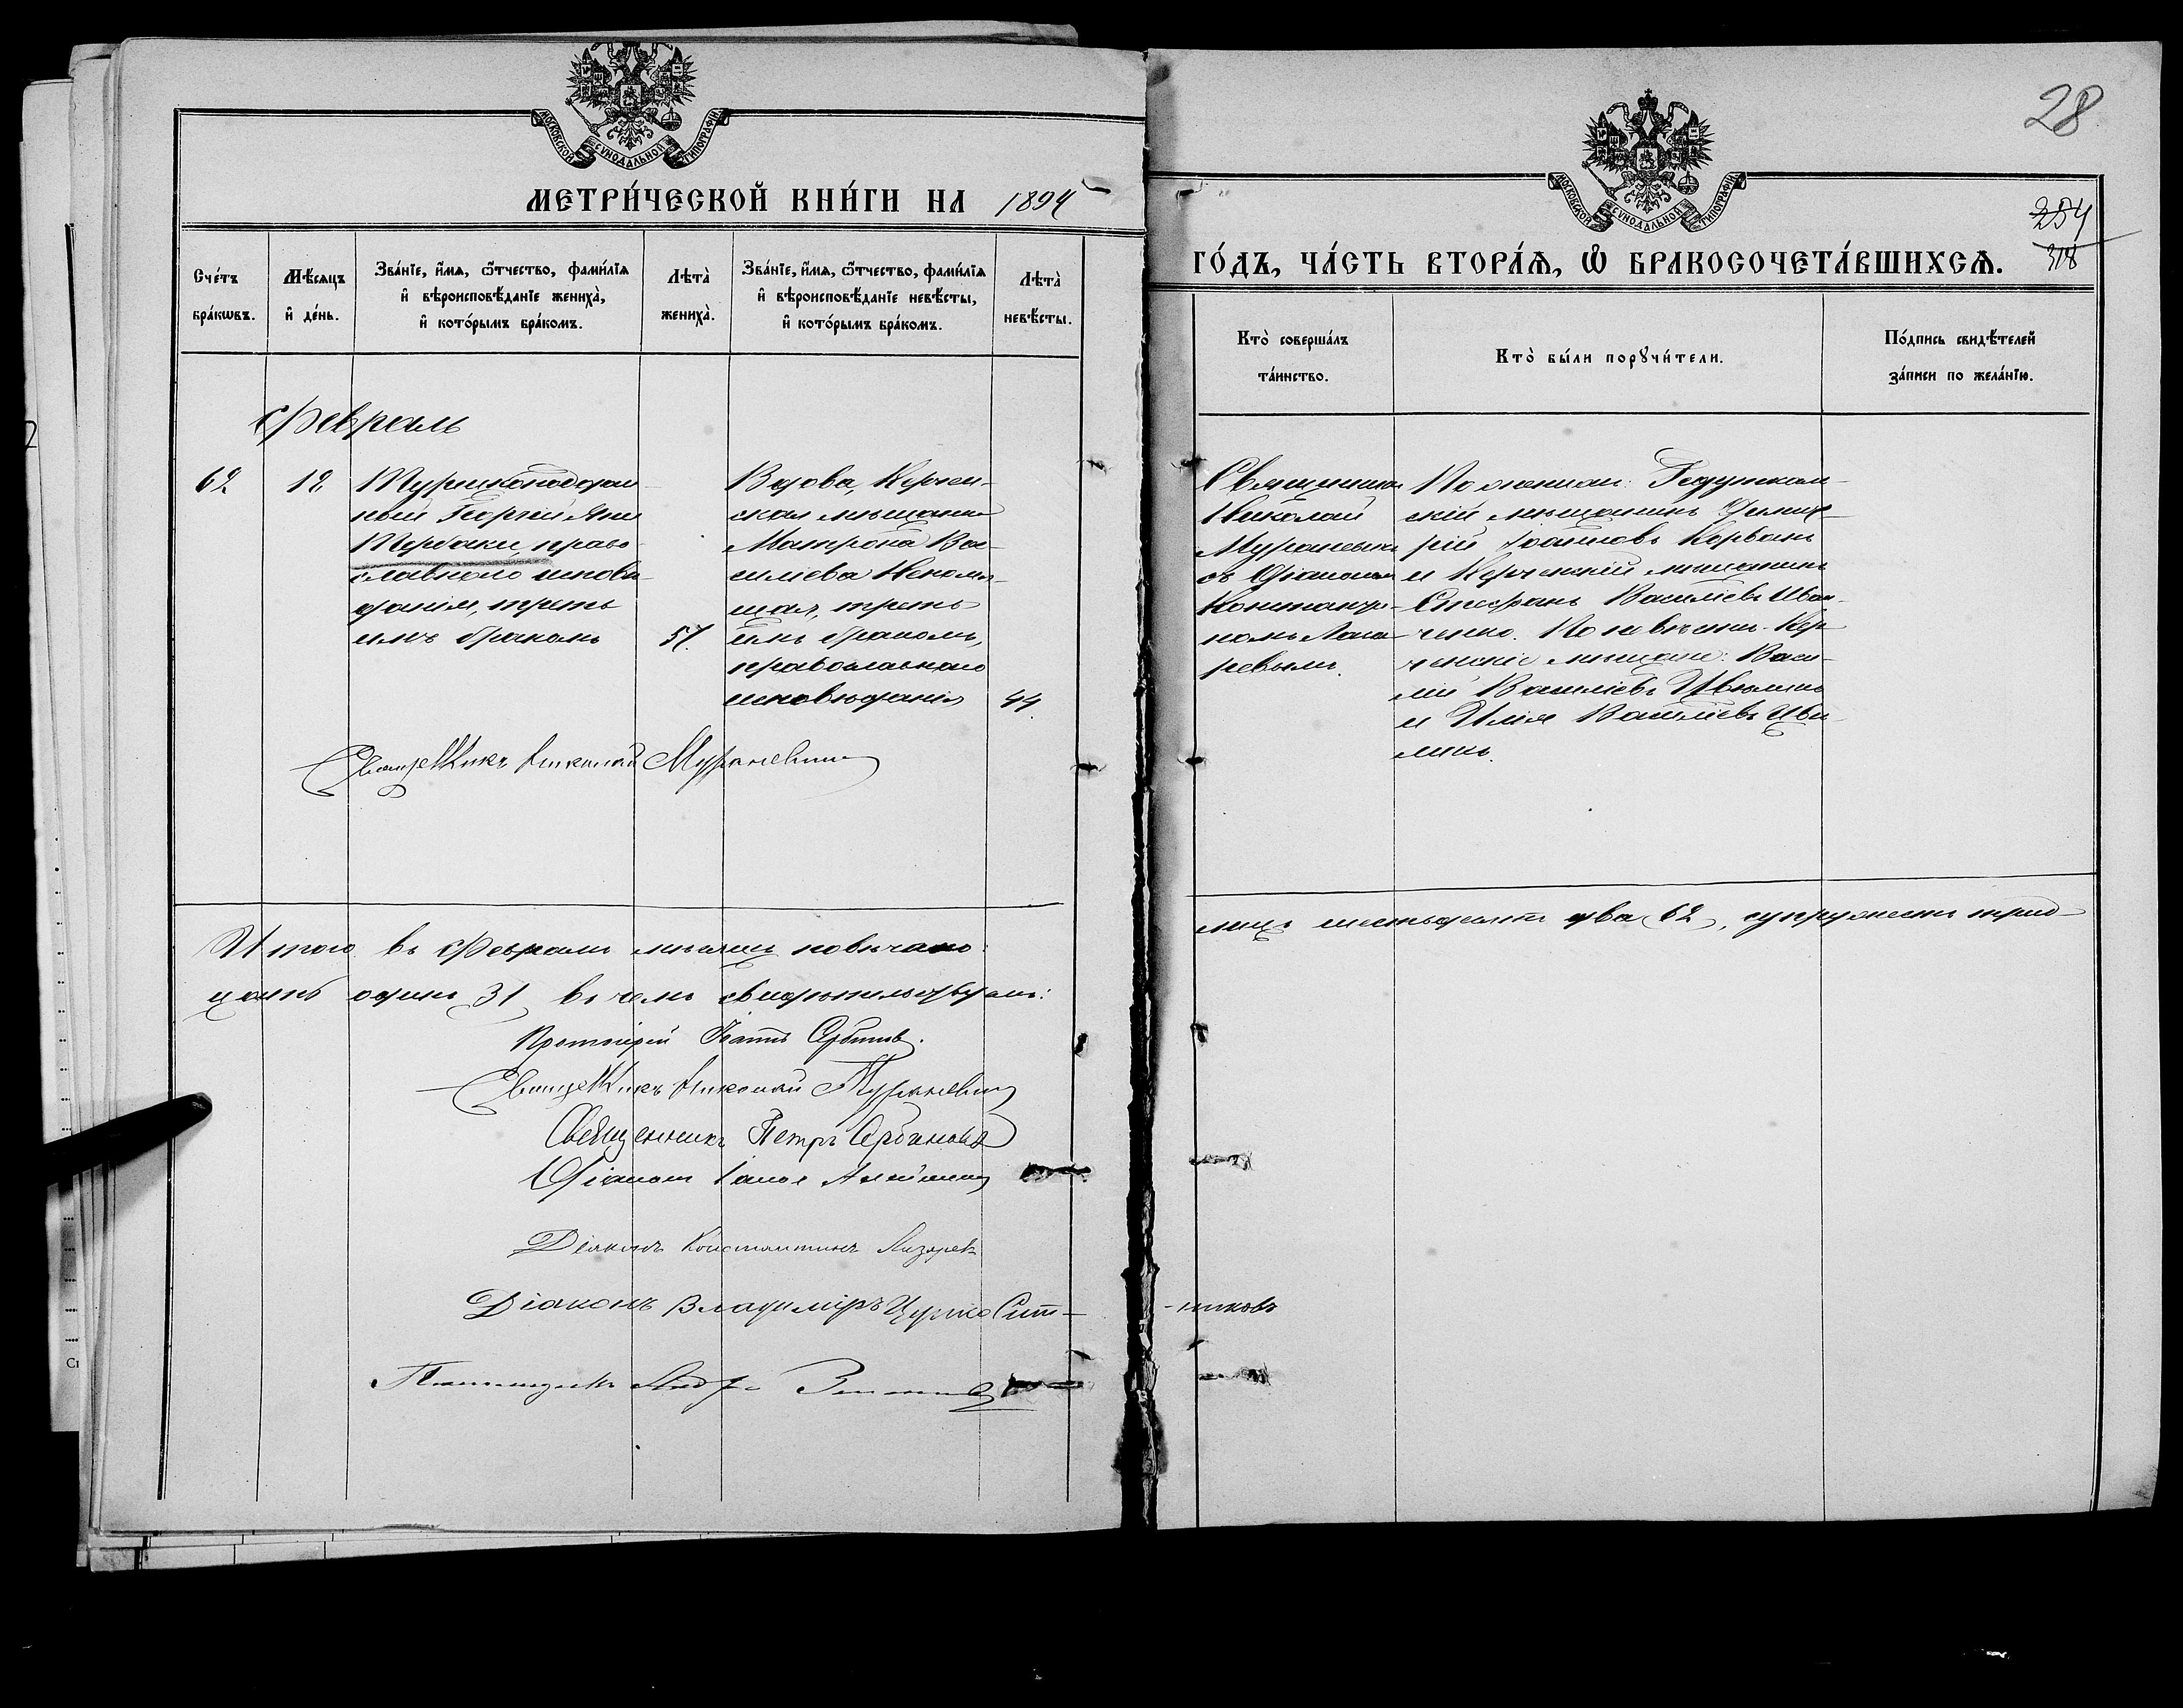 МОСКОВСКОЙ СѴНОДАЛЬНОЙ ТИПОГРАФІИ
МЕТРИ́ЧЕСКОЙ КНИ́ГИ НА 1894
Сче́тъ бра́кωвъ.
Мѣ́сяцъ и҆ де́нь.
Зва́нїе, и҆́мѧ, ѻ҆́тчество, фами́лїѧ
и҆ вѣроисповѣ́данїе жениха̀,
и҆ кото́рымъ бра́комъ.
Лѣта̀ жениха̀.
Зва́нїе, и҆́мѧ, ѻ҆́тчество, фами́лїѧ
и҆ вѣроисповѣ́данїе невѣ́сты,
и҆ кото́рымъ бра́комъ.
Лѣта̀ невѣ́сты.
Февраль
62
12
Турецкоподдан-
ный Георгій Яни
Тербаки, право-
славнаго исповѣ-
данія, треть-
имъ бракомъ
57.
Вдова, Керчен-
ская мѣщанка
Матрона Ва-
силіева
треть-
имъ бракомъ,
православнаго
исповѣданія
44.
Священникъ Николай Мураневичъ
Итого въ Февралѣ мѣсяцѣ повѣнчано:
цать одинъ 31 въ чемъ свидѣтельствуемъ:
Протоіерей Іоаннъ Сербиновъ.
Священникъ Николай Мураневичъ
Священникъ Петръ Сербиновъ
Діаконъ
Діаконъ Константинъ Лазарев
Діаконъ Владиміръ Сит-
Псаломщикъ
28
254
318
МОСКОВСКОЙ СѴНОДАЛЬНОЙ ТИПОГРАФІИ
ГО́ДЪ, ЧА́СТЬ ВТОРА́Ѧ, Ѡ҆ БРАКОСОЧЕТА́ВШИХСѦ.
Кто̀ соверша́лъ та́инство.
Кто̀ бы́ли порꙋчи́тели.
По́дпись свидѣ́телей за́писи по жела́нїю.
Священникъ
Николай
Мураневичъ
съ Діакономъ
Константи-
номъ Лаза-
ревымъ.
По женихѣ:
скій мѣщанинъ Димит-
рій Іоанновъ Корбанъ
и Керченскій мѣщанинъ
Стефанъ Василіевъ Иван-
ченко. По невѣстѣ: Кер-
ченскіе мѣщане: Васи-
лій Василіевъ
и Илія Василіевъ Цви-
линъ.
лицъ шестьдесятъ два 62, супружествъ трид-
-никовъ